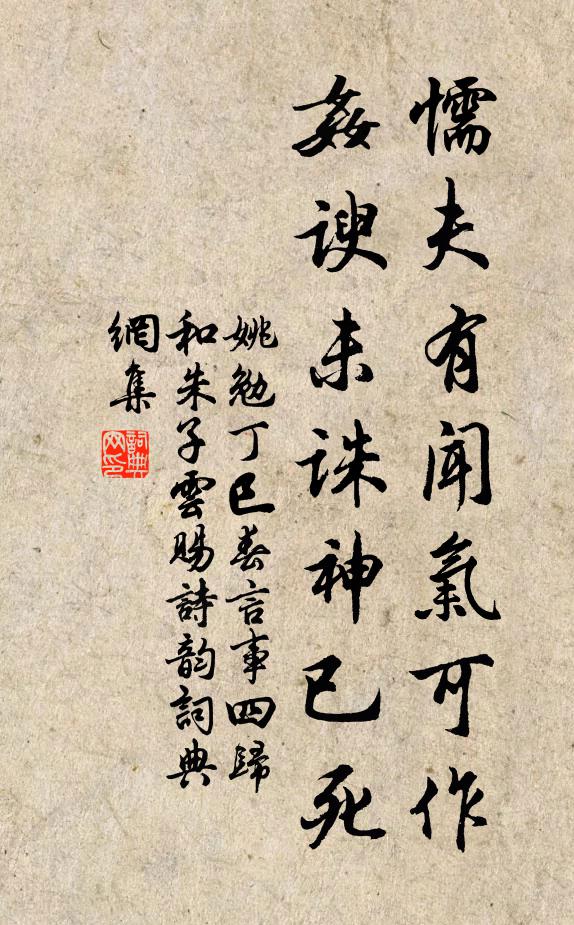 懦夫有聞氣可作
姦諛未誅神已死
姚勉丁巳春言事四歸
和朱子雲賜詩韵詞典
網集
詞典
网印